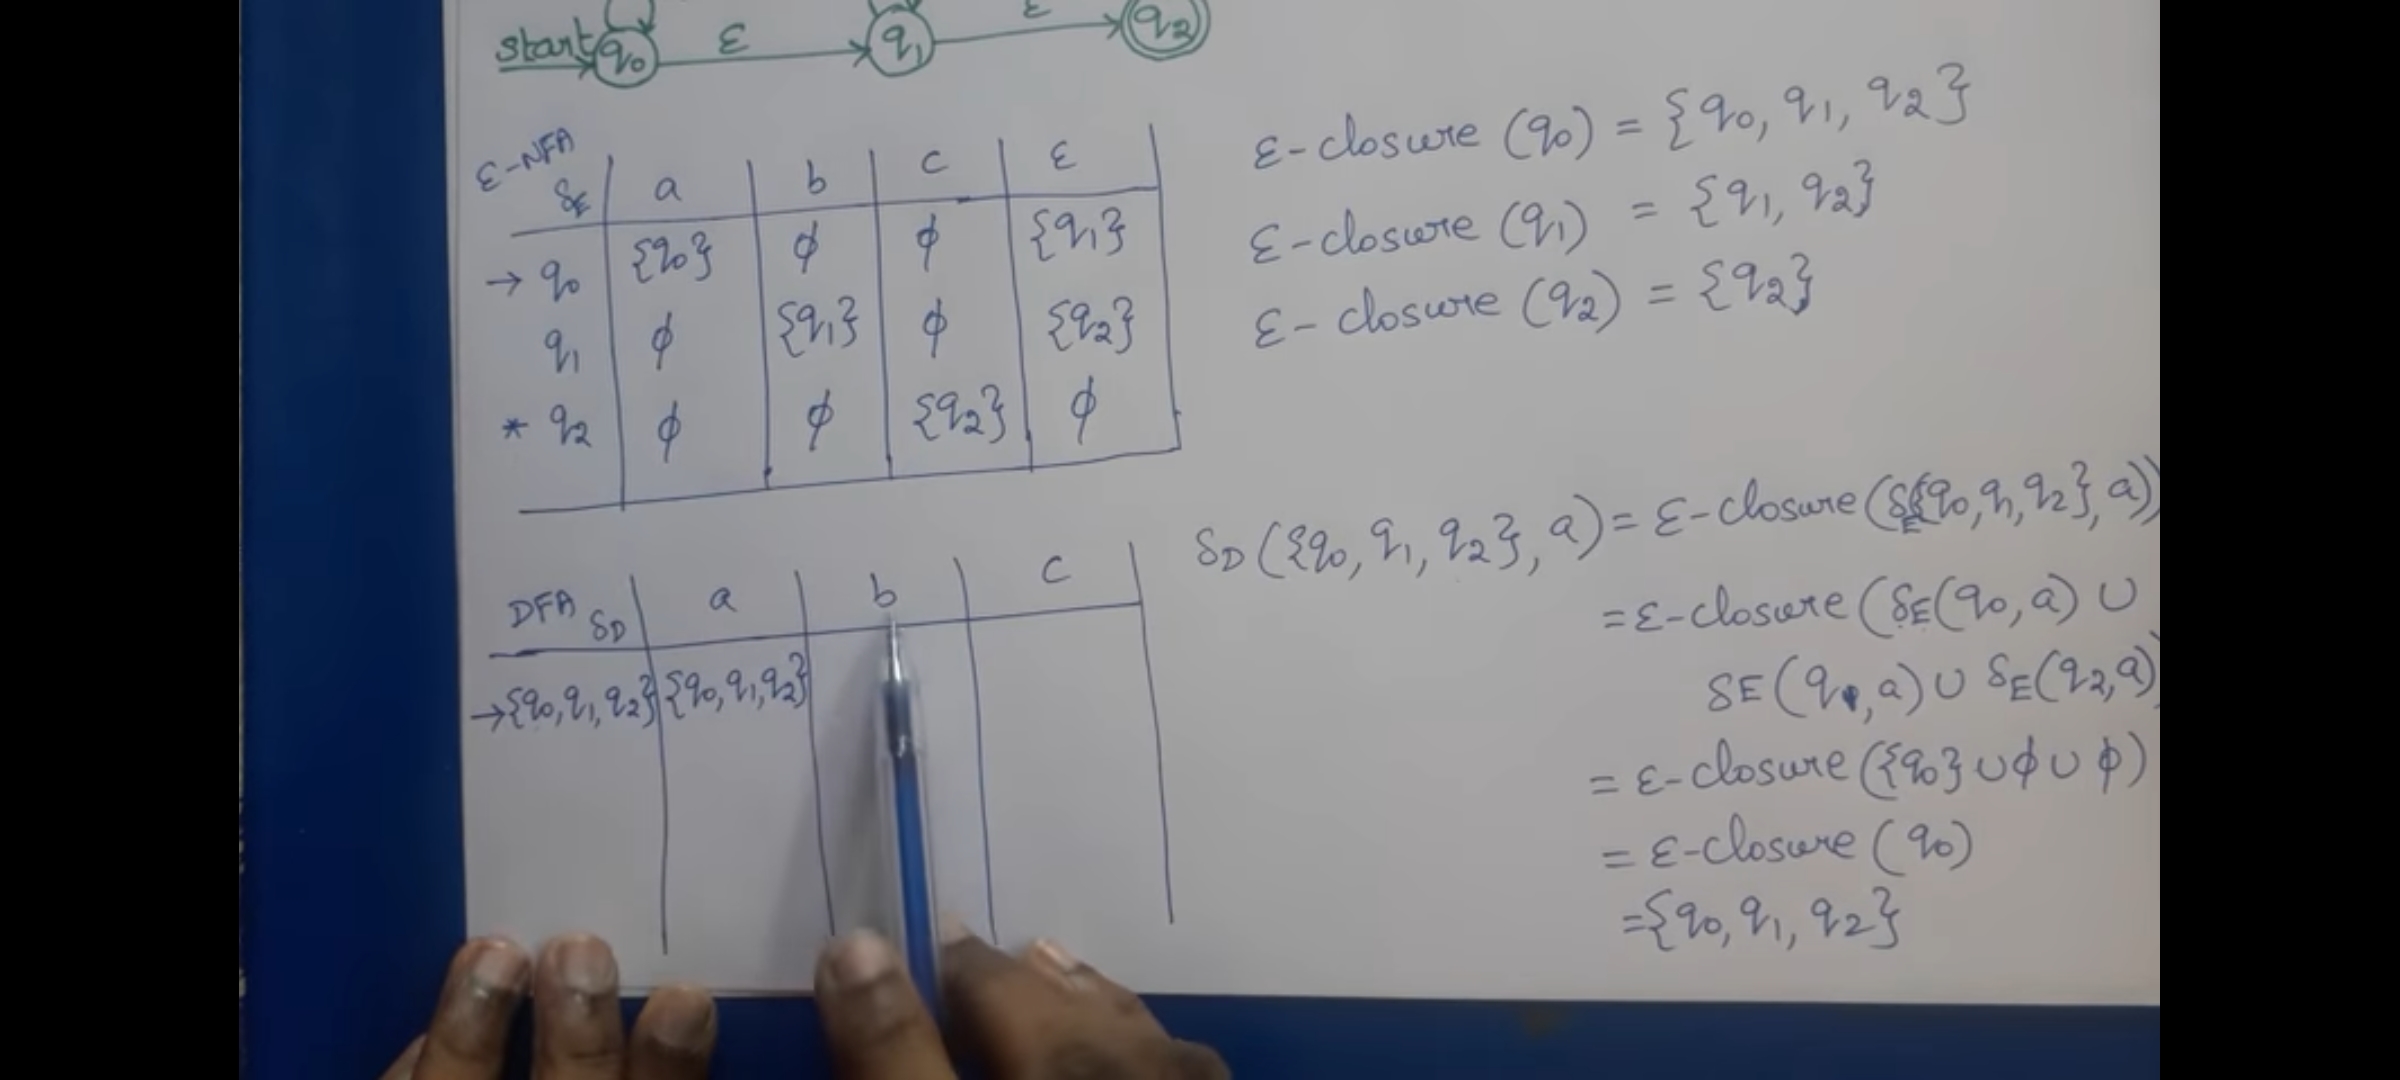 start q0 ε q1 ε q2
ε-NFA
δE a b c ε
→ q0 {q0} ϕ ϕ {q1}
q1 ϕ {q1} ϕ {q2}
* q2 ϕ ϕ {q2} ϕ
ε-closure (q0) = {q0, q1, q2}
ε-closure (q1) = {q1, q2}
ε-closure (q2) = {q2}
DFA δD a b c
→{q0, q1, q2} {q0, q1, q2}
δD ({q0, q1, q2}, a) = ε-closure (δE({q0, q1, q2}, a))
= ε-closure (δE(q0, a) ∪
δE (q1, a) ∪ δE(q2, a)
= ε-closure ({q0} ∪ ϕ ∪ ϕ)
= ε-closure (q0)
= {q0, q1, q2}